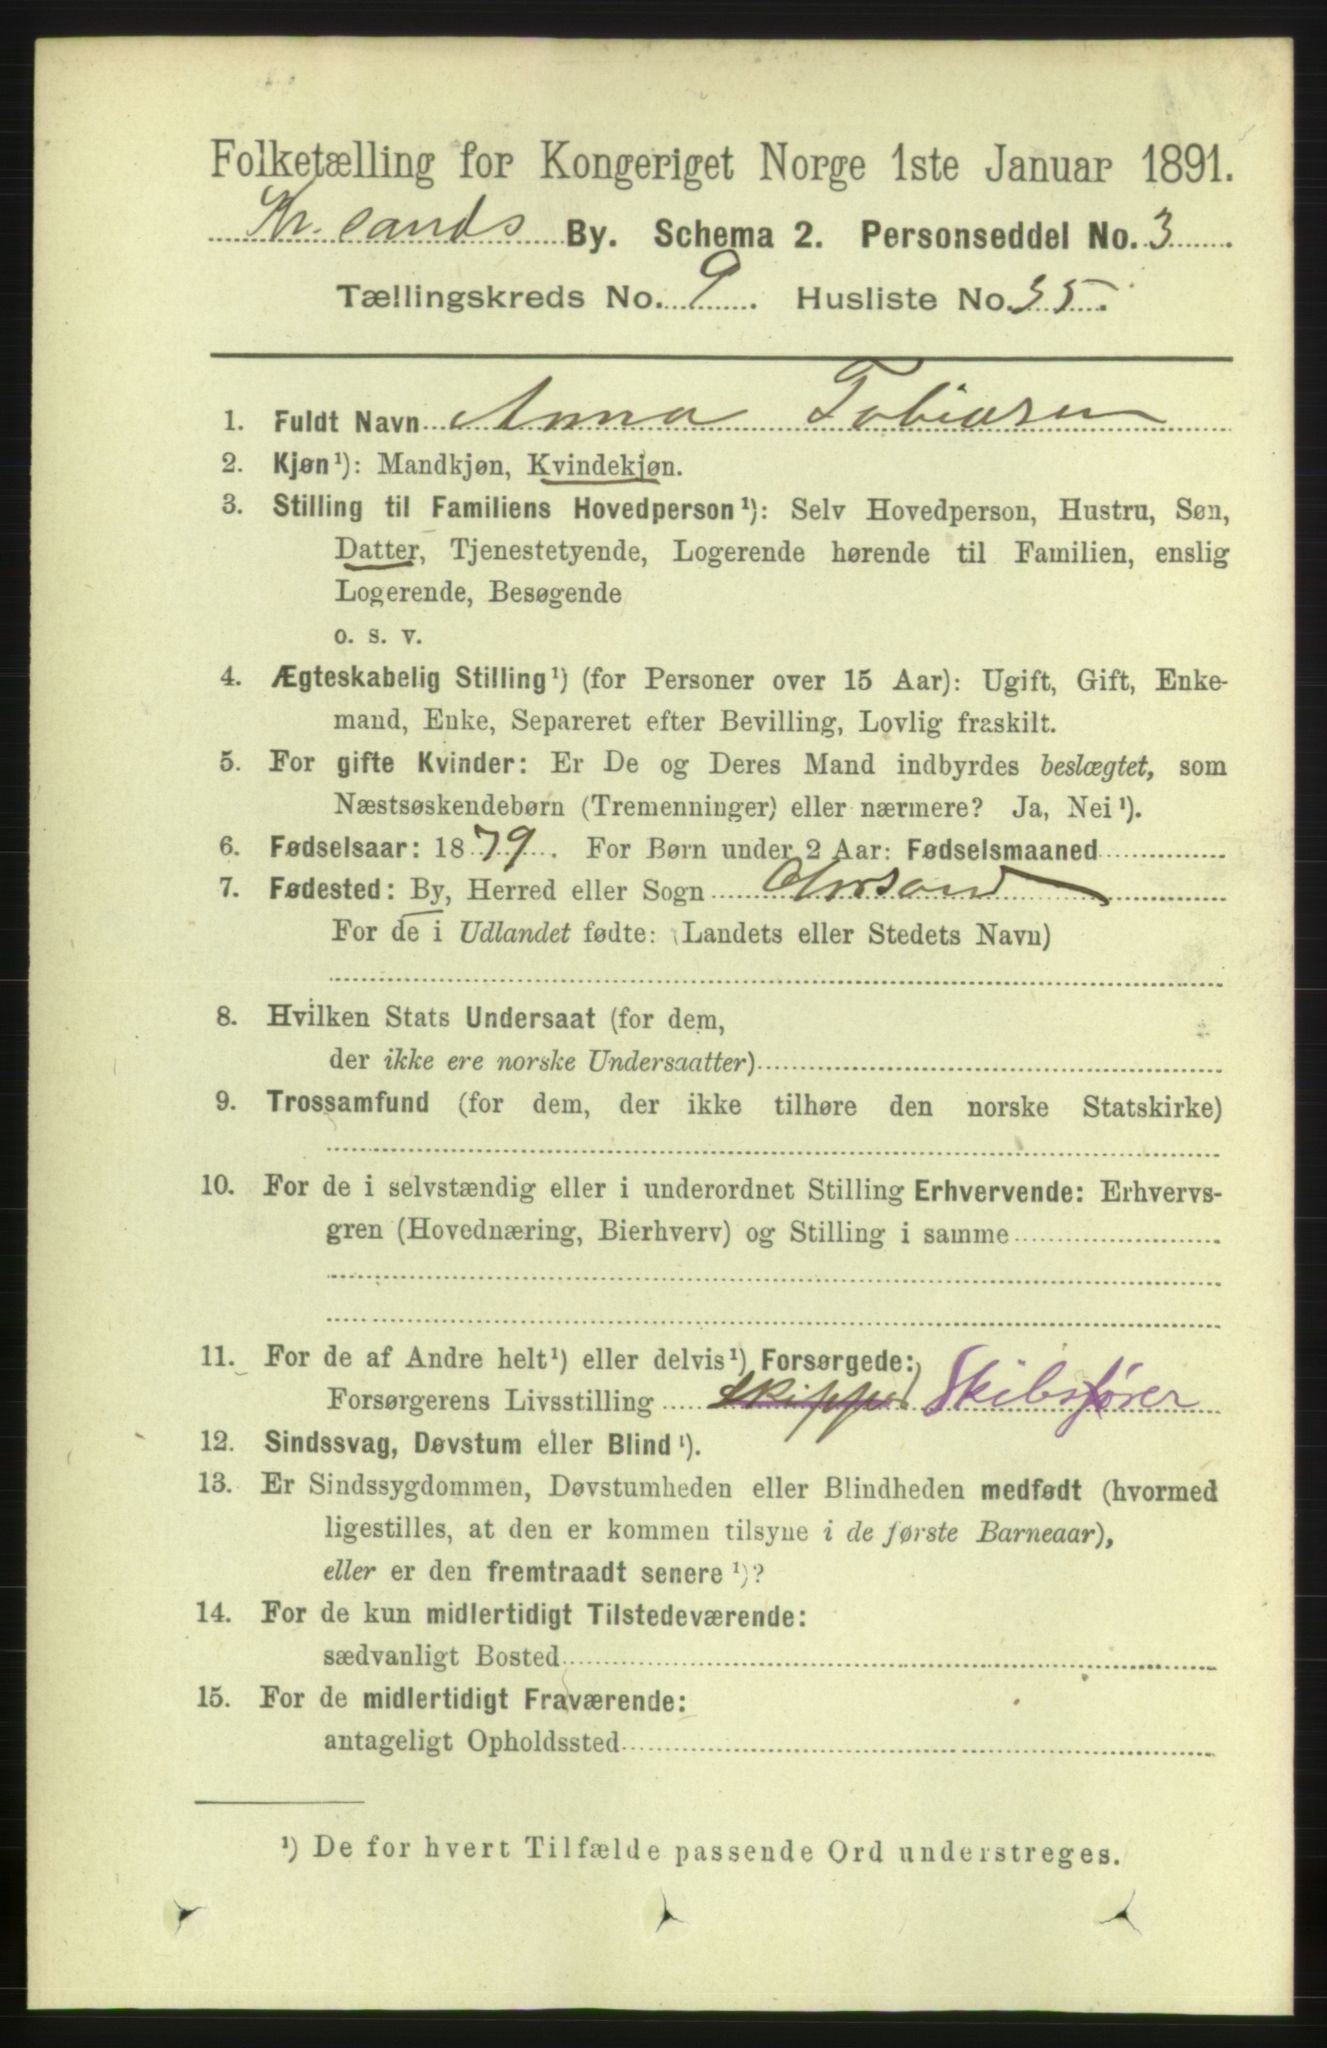 Folketælling for Kongeriget Norge 1ste Januar 1891.
Kr.sands By. Schema 2. Personseddel No. 3.
Tællingskreds No. 9. Husliste No. 35.
1. Fuldt Navn Anna Tobiasen
2. Kjøn¹): Mandkjøn, Kvindekjøn.
3. Stilling til Familiens Hovedperson¹): Selv Hovedperson, Hustru, Søn,
Datter, Tjenestetyende, Logerende hørende til Familien, enslig
Logerende, Besøgende
o. s. v.
4. Ægteskabelig Stilling¹) (for Personer over 15 Aar): Ugift, Gift, Enke-
mand, Enke, Separeret efter Bevilling, Lovlig fraskilt.
5. For gifte Kvinder: Er De og Deres Mand indbyrdes beslægtet, som
Næstsøskendebørn (Tremenninger) eller nærmere? Ja, Nei¹).
6. Fødselsaar: 1879. For Børn under 2 Aar: Fødselsmaaned
7. Fødested: By, Herred eller Sogn Chrsand
For de i Udlandet fødte: (Landets eller Stedets Navn)
8. Hvilken Stats Undersaat (for dem,
der ikke ere norske Undersaatter)
9. Trossamfund (for dem, der ikke tilhøre den norske Statskirke)
10. For de i selvstændig eller i underordnet Stilling Erhvervende: Erhvervs-
gren (Hovednæring, Bierhverv) og Stilling i samme
11. For de af Andre helt¹) eller delvis¹) Forsørgede:
Forsørgerens Livsstilling Skipper Skibsfører
12. Sindssvag, Døvstum eller Blind¹).
13. Er Sindssygdommen, Døvstumheden eller Blindheden medfødt (hvormed
ligestilles, at den er kommen tilsyne i de første Barneaar),
eller er den fremtraadt senere¹)?
14. For de kun midlertidigt Tilstedeværende:
sædvanligt Bosted
15. For de midlertidigt Fraværende:
antageligt Opholdssted
¹) De for hvert Tilfælde passende Ord understreges.